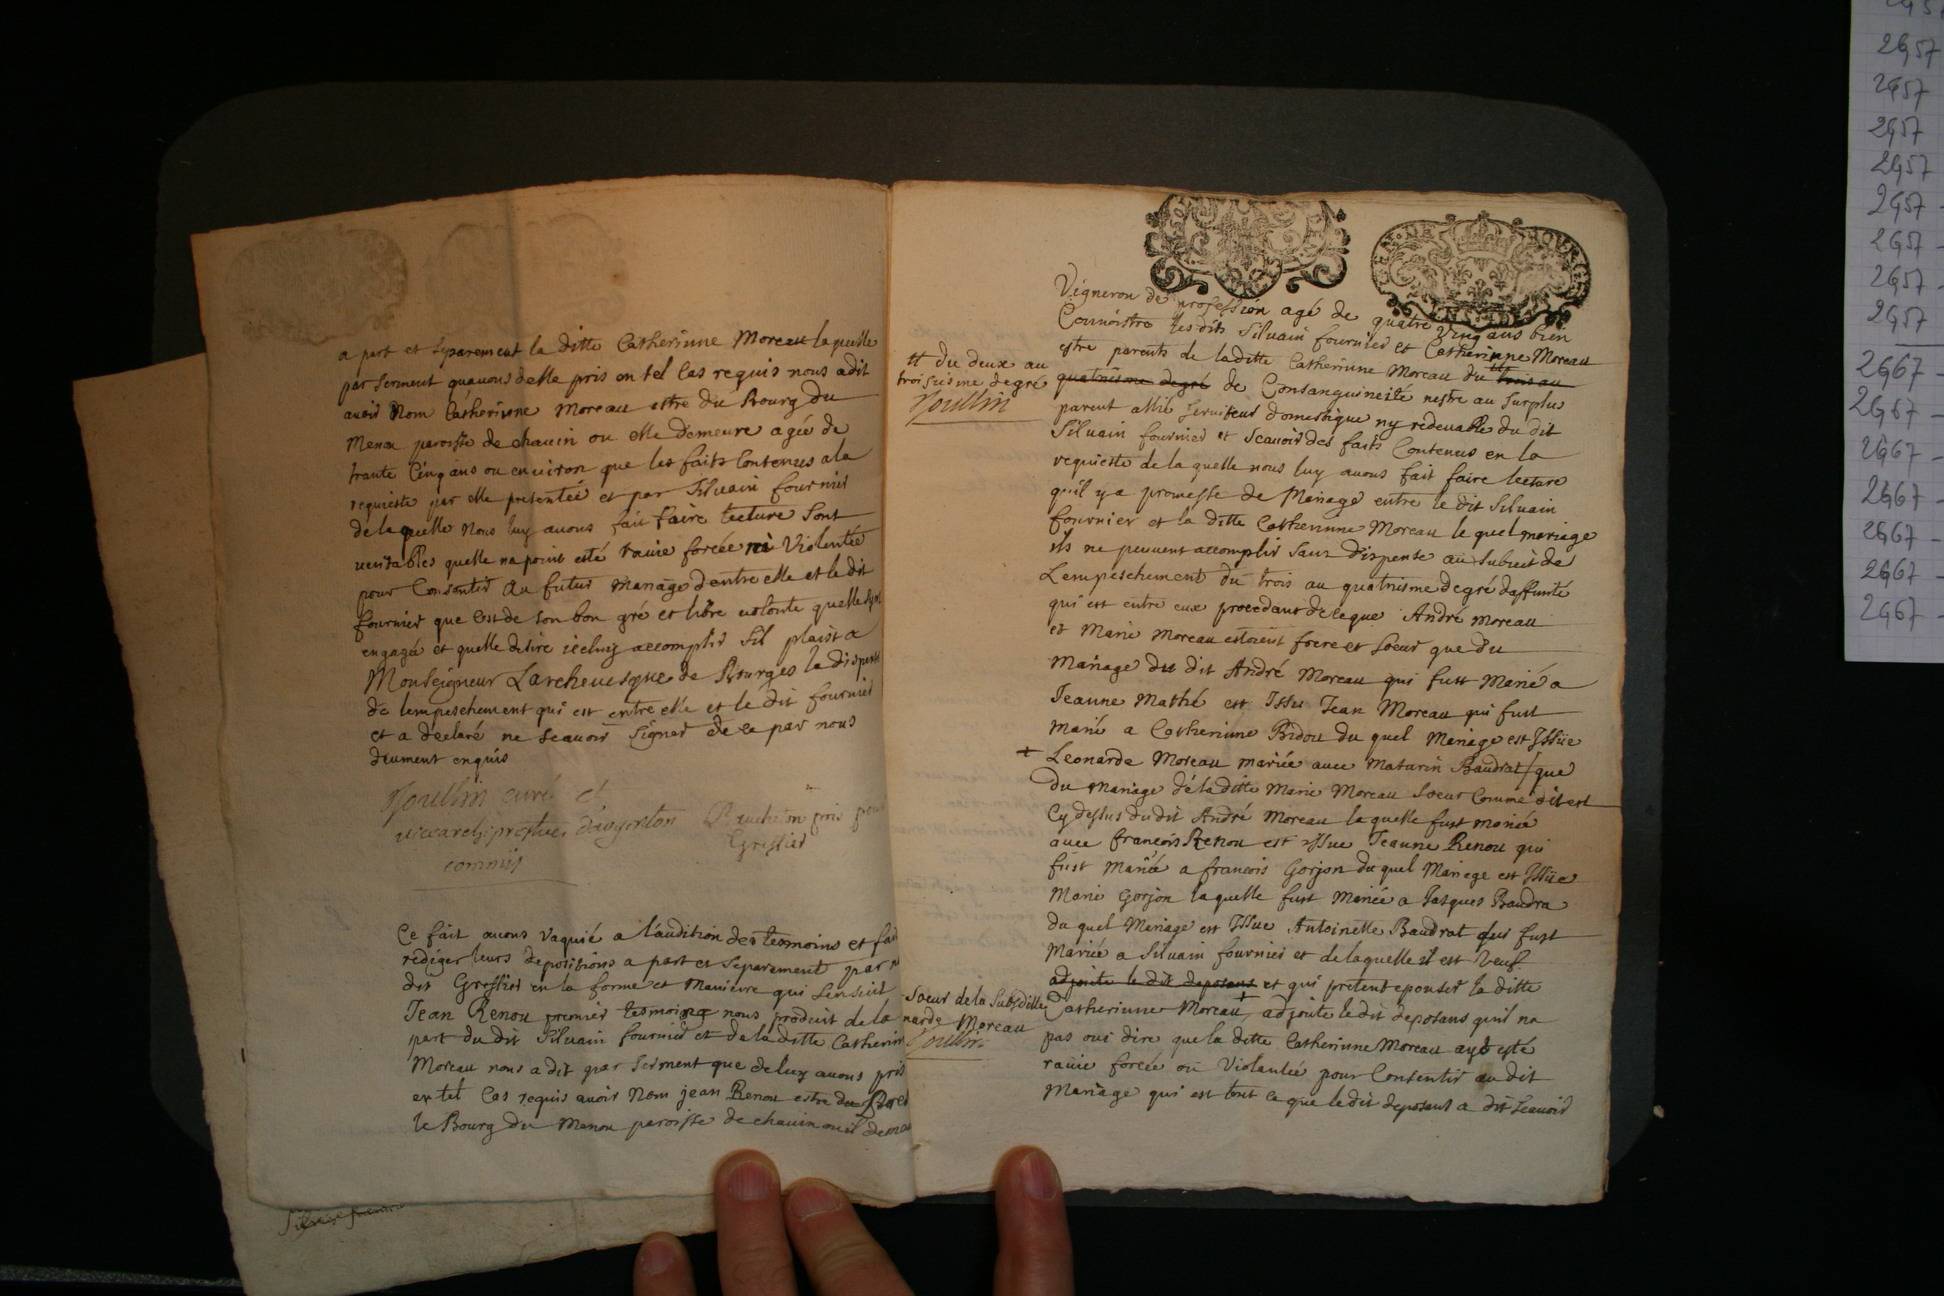 a part et separement la ditte Catherinne Moreau laquelle
par serment quauons delle pris en tel Cas requis nous a dit
auoir Nom Catherinne Moreau estre du Bourg du
Menou paroisse de chauin ou elle demeure agée de
trante Cinq ans ou enuiron que les faits Contenus a la
requieste par elle presentée et par Siluain fournier
de laquelle Nous luy auons fait faire lecture sont
ueritables quelle na point esté rauie forcée ni Violentée
pour Consentir au futur Mariage dentre elle et le dit
fournier que Cest de son bon gré et libre uolonte quelle sest
engagée et quelle desire iceluy accomplir Sil plaist a
Monseigneur Larcheuesque de Bourges la dispense
de lempeschement qui est entre elle et le dit fournier
et a déclaré ne scauoir signer de ce par nous
deument enquis
Joullin curé et
uicearchiprestre dargenton Brucheton pris pour
Greffier
commis
Ce fait auons Vaquié a l'audition des tesmoins et fait
rediger leurs depositions a part et separement par
dit Greffier en la forme et Maniere qui Sensuit
Jean Renou premier tesmoing nous produit de la
part du dit Siluain fournier et de la ditte Catherinne
Moreau nous a dit par serment que de luy auons pris
en tel Cas requis auoir Nom jean Renou estre du
le Bourg du Menou paroisse de chauin ou il demeure
Silvain fournier
Vigneron de profession agé de quatre Vingt ans bien
Connoistre lesdits Siluain fournier et Catherinne Moreau
estre parents de la ditte Catherinne Moreau du trois au
tt du deux au
troisiesme degré
Joullin
quatriesme degré de Consanguineité nestre au surplus
parent allié seruiteur domestique ny redeuable du dit
Siluain fournier et Scauoir des faits Contenus en la
requieste de la quelle nous luy auons fait faire lecture
quil y a promesse de Mariage entre le dit Siluain
fournier et la ditte Catherinne Moreau le quel mariage
ils ne peuuent accomplir sans dispense au subiect de
Lempeschement du trois au quatriesme degré daffinité
qui est entre eux procedant de ce que André Moreau
et Marie Moreau estoient frere et soeur que du
Mariage du dit André Moreau qui fust Marié a
Jeanne Mathé est Issu Jean Moreau qui fust
Marié a Catherinne Bidou du quel Mariage est Issüe
+ Leonarde Moreau mariée auec Maturin Baudrat / que
du Mariage de la ditte Marie Moreau soeur Comme dit est
Cy dessus du dit André Moreau la quelle fust mariée
auec françois Renou est issue Jeanne Renou qui
fust Mariée a francois Gorjon du quel Mariage est Issüe
Marie Gorjon laquelle fust Mariée a Jasques Baudra
du quel Mariage est Issue Antoinette Baudrat qui fust
Mariée a Siluain fournier et de laquelle il est Veuf
adjoute le dit deposans et qui pretent epouser la ditte
soeur de la Susditte
narde Moreau
Joullin
Catherinne Moreau + adjoute le dit deposans quil na
pas oui dire que la ditte Catherinne Moreau ayt esté
rauie forcée ou Violentée pour Consentir au dit
Mariage qui est tout ce que le dit deposant a dit scauoir
2G57
2G57
2G57
2G57
2G57
2G57 -
2G57 -
2G57 -
2G57 -
2G67 -
2G67 -
2G67 -
2G67 -
2G67 -
2G67 -
2G67 -